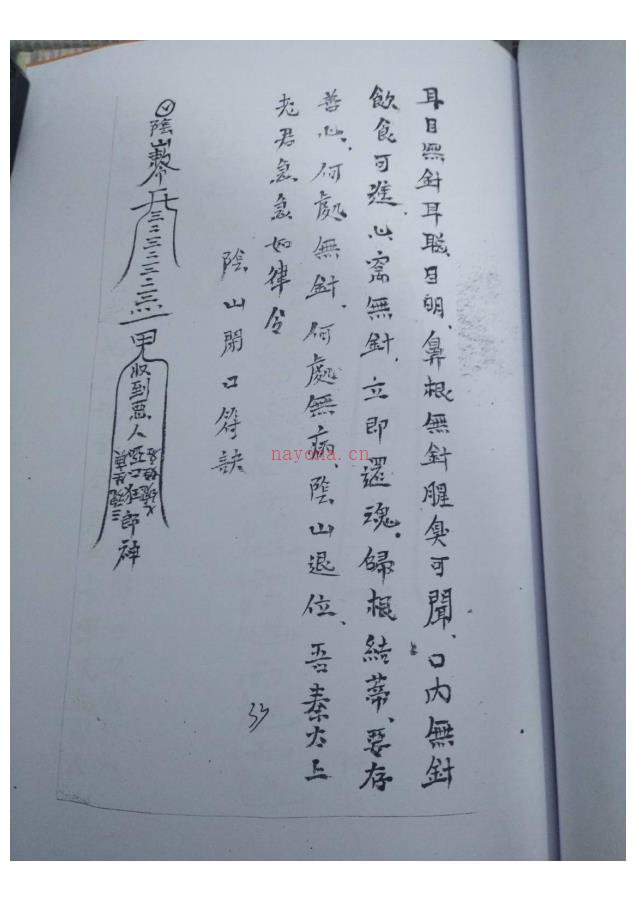 耳目無針耳聡目明、鼻根無針腥臭可聞、口内無針
飲食可進、心窩無針、立即還魂、歸根結蒂、要存
善心、何處無針、何處無病、陰山退位、吾奉太上
老君急急如律令
陰山閉口符訣
陰山
收到惡人
神
33
nayona.cn